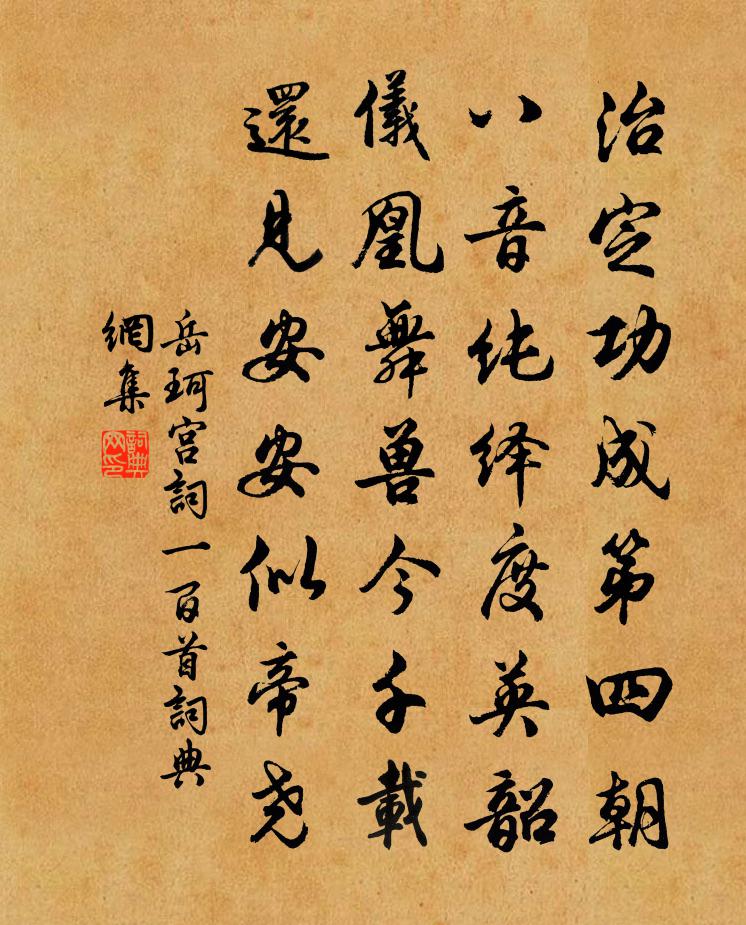 治定功成第四朝
八音纯绎度英韶
儀凰舞兽今千載
還見安安似帝尧
岳珂宫詞一百首詞典
網集
詞典
网印